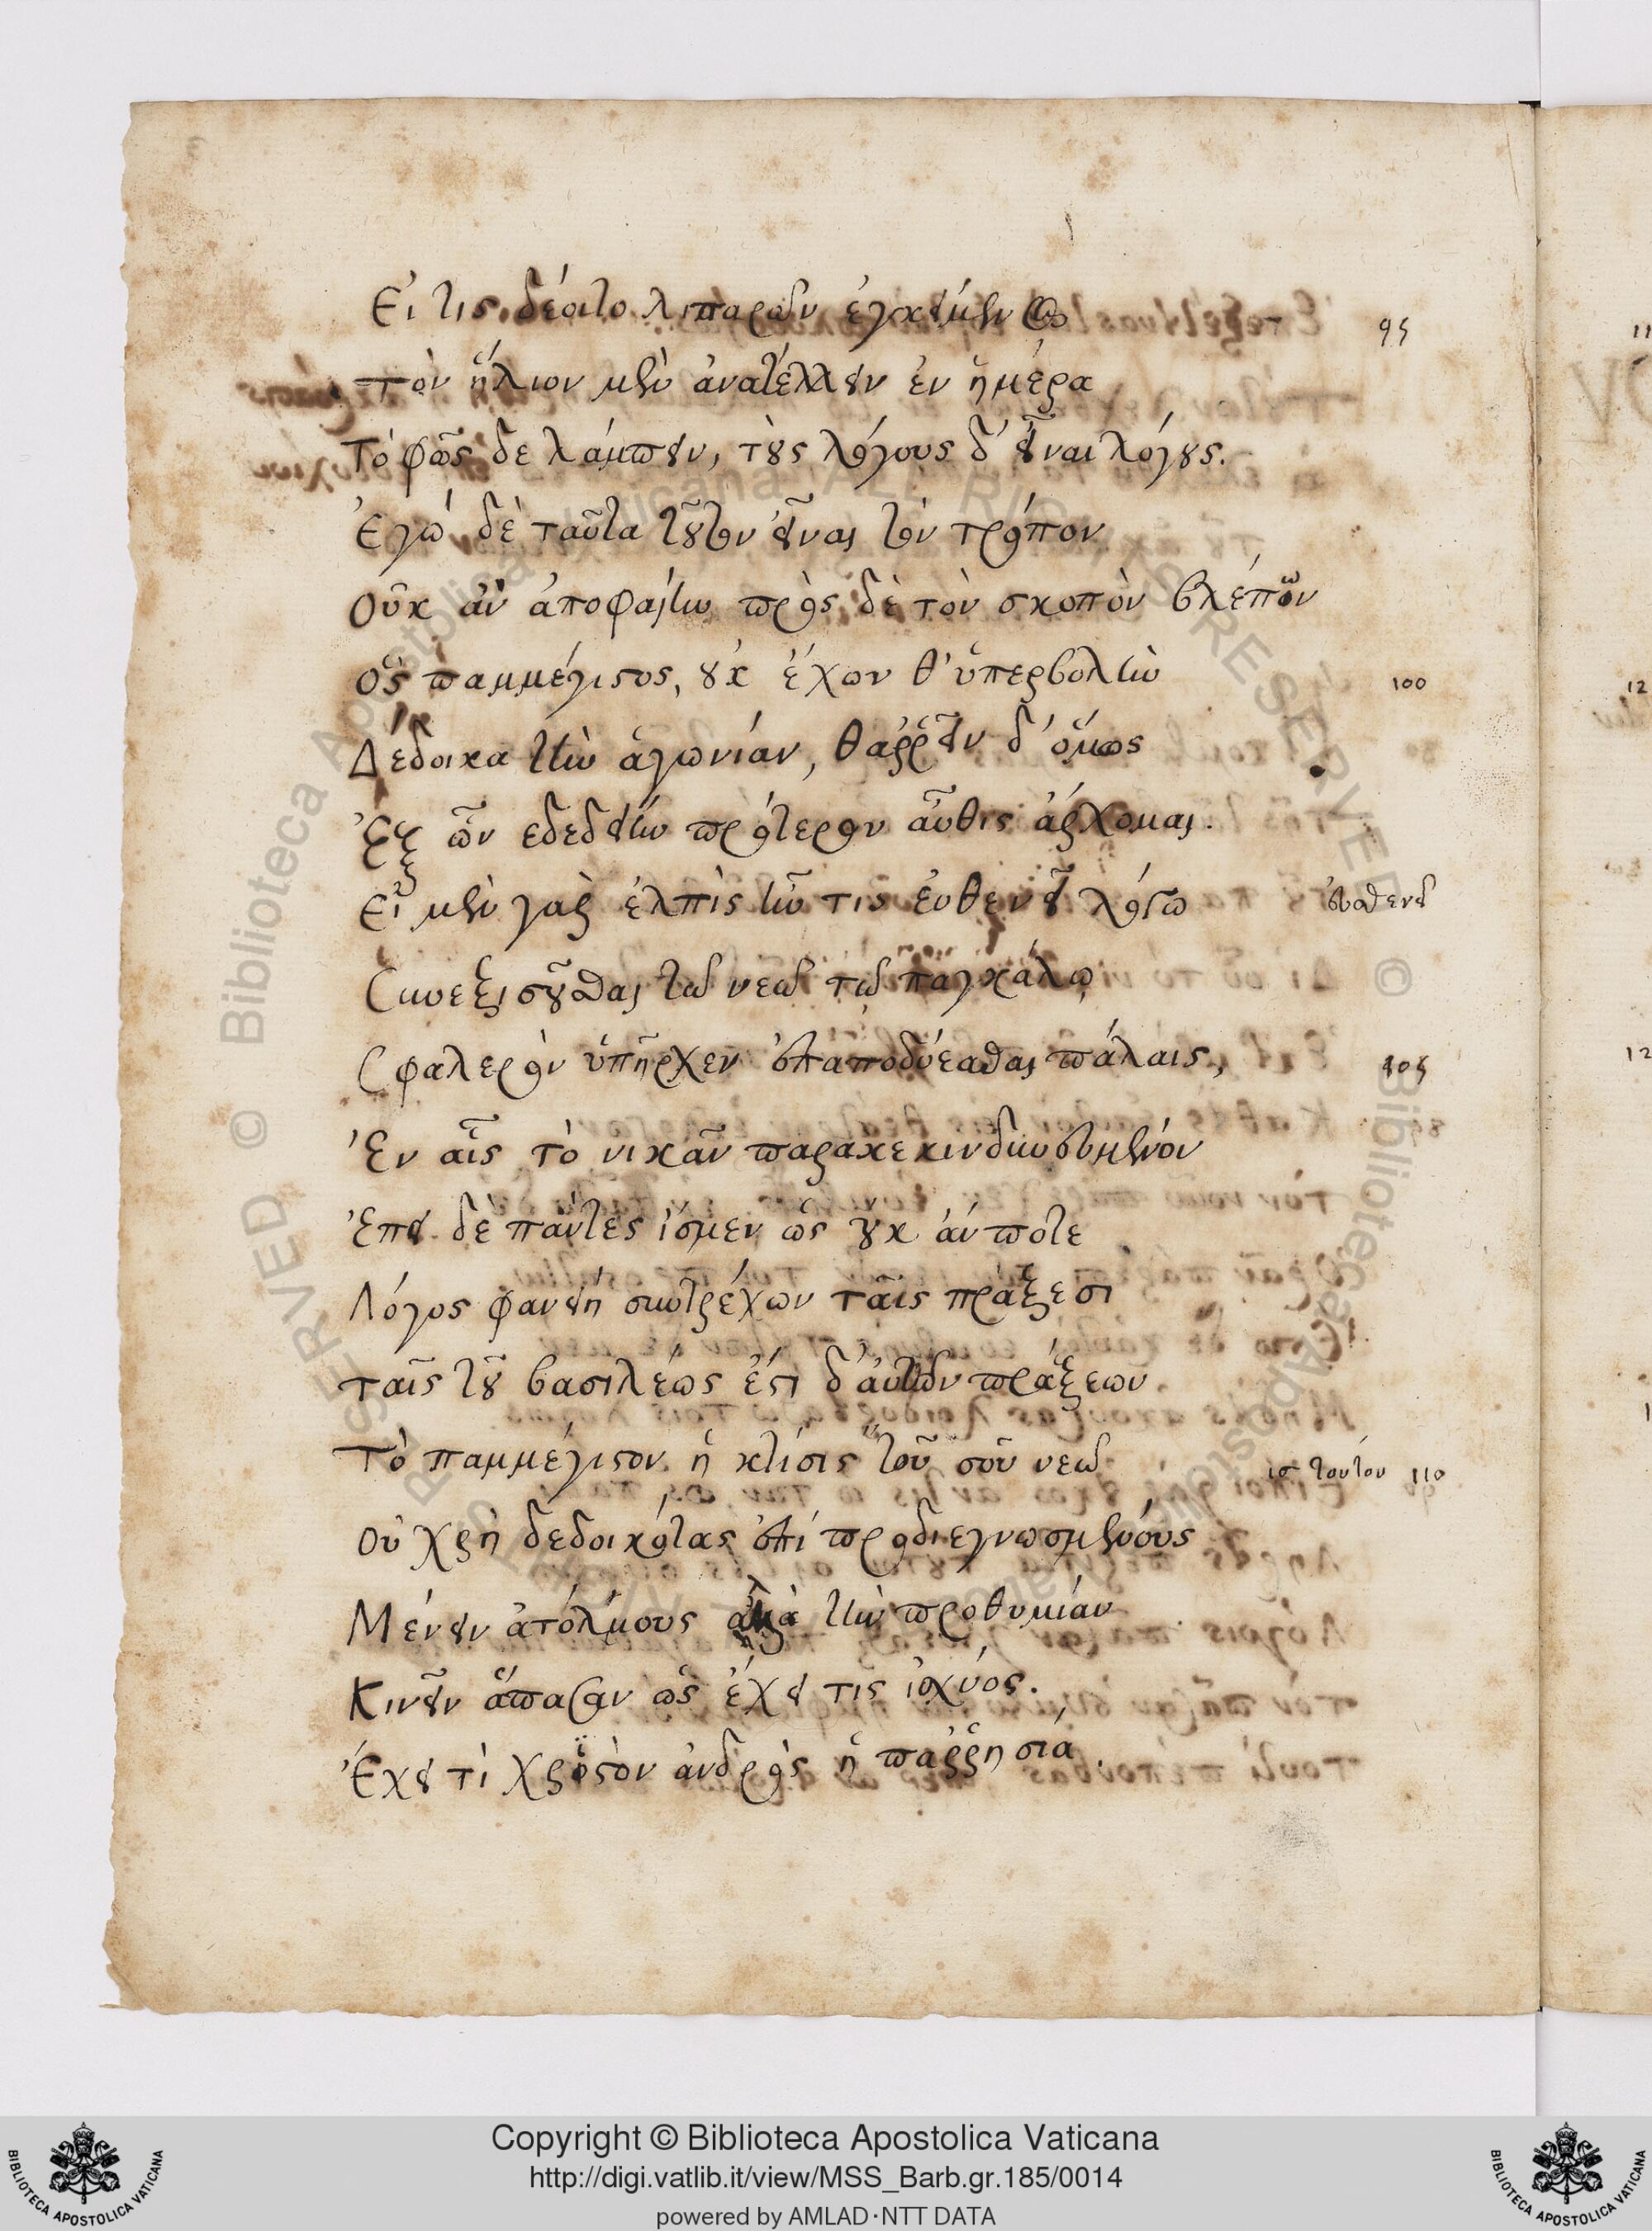 Εἰ τις δέοιτο λιπαρῶν ἐγκειμένως 95
Τὸν ἥλιον μὲν ἀνατέλλειν ἐν ἡμέρα
Τὸ φῶς δε λάμπειν, τοὺς λόγους δ' εἶναι λόγους.
Ἐγὼ δὲ ταῦτα τοῦτον εἶναι τὸν τρόπον
Οὐκ ἂν ἀποφαίην πρὸς δὲ τὸν σκοπὸν βλέπων
Ὃς παμμέγιστος, οὐκ ἔχων θ' ὑπερβολὴν 100
Δέδοικα τὴν ἀγωνίαν, θαρρεῖν δ' ὅμως
Ἐξ ὧν ἐδεδείην πρότερον αὖθις ἄρχομαι.
Εἰ μὲν γὰρ ἐλπὶς ἦν τις εὐθενεῖ λόγω
Συνεξισοῦσθαι τῶ νεῶ τῶ παγκάλω
Σφαλερὸν ὑπῆρχεν ἐπαποδύεσθαι πάλαις, 105
Ἐν αἷς τὸ νικᾶν παρακεκινδυνευμένον
Ἐπεὶ δὲ πάντες ἴσμεν ὡς οὐκ ἄν ποτε
Λόγος φανείη συντρέχων ταῖς πράξεσι
ταῖς τοῦ βασιλέως ἔστι δ' αὐτῶν πράξεων
Τὸ παμμέγιστον ἡ κτίσις τοῦ σοῦ νεῶ 110
Οὐ χρὴ δεδοικότας ἐπὶ προδιεγνωσμένους
Μένειν ἀτόλμους ἀλλὰ τὴν προθυμίαν
Κινεῖν ἅπασαν ὡς ἔχει τις ἰσχύος.
Ἔχει τὶ χρηστὸν ἀνδρὸς ἡ παρρησία.
Copyright © Biblioteca Apostolica Vaticana
http://digi.vatlib.it/view/MSS_Barb.gr.185/0014
powered by AMLAD·NTT DATA